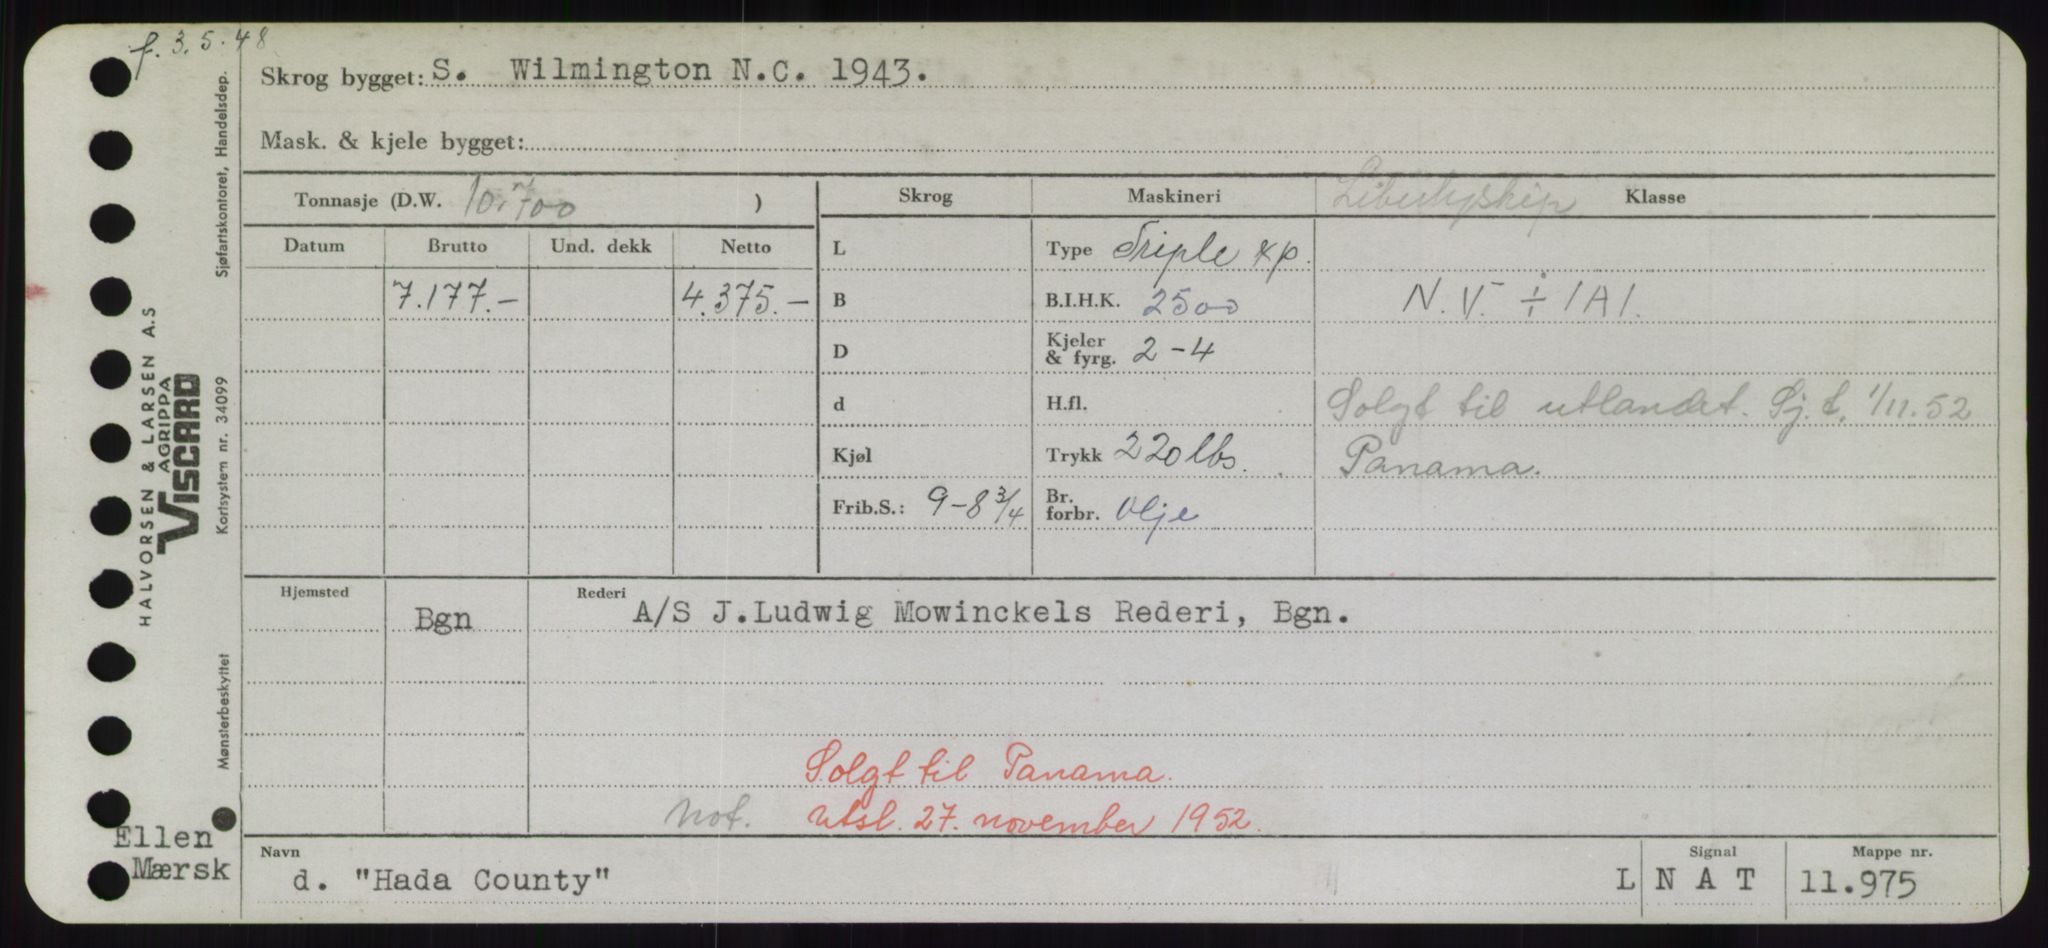 f. 3.5.48
Skrog bygget: S. Wilmington N.C. 1943.
Mask. & kjele bygget:
Tonnasje (D.W. 10.700 )
Skrog Maskineri Libertyship Klasse
Datum Brutto Und. dekk Netto
L Type Triple xp.
7.177.- 4.375.- B B.I.H.K. 2500 N.V. ÷ 1A1.
D Kjeler & fyrg. 2-4
d H.fl. Solgt til utlandet. Sj.t. 1/11.52
Kjøl Trykk 220 lbs. Panama.
Frib.S.: 9-8 3/4 Br. forbr. Olje
Hjemsted Rederi
Bgn A/S J.Ludwig Mowinckels Rederi, Bgn.
Solgt til Panama.
not. utsl. 27. november 1952.
Navn Signal Mappe nr.
d. "Hada County" L N A T 11.975
Ellen
Mærsk
HALVORSEN & LARSEN A.S
AGRIPPA
VISCARD
Mønsterbeskyttet Kortsystem nr. 34099 Sjøfartskontoret, Handelsdep.